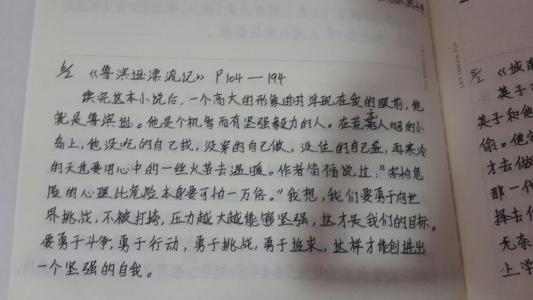 《鲁滨逊漂流记》 P104—194
读完这本小说后，一个高大的形象时时浮现在我的眼前，他
就是鲁滨逊。他是个机智而有坚强毅力的人。在荒无人烟的小
岛上，他没吃的自己找，没穿的自己做，没住的自己盖，再寒冷
的天也要用心中的一丝火苗去温暖。作者笛福说过："害怕危
险的心理比危险本身要可怕一万倍。"我想，我们要勇于向世
界挑战，不被打垮，压力越大越能够坚强，这才是我们的目标。
要勇于斗争，勇于行动，勇于挑战，勇于追求，这样才能创造出
一个坚强的自我。
《城南
英子
英子和他
偷。他
才去做
那一
择去
无奈
上学